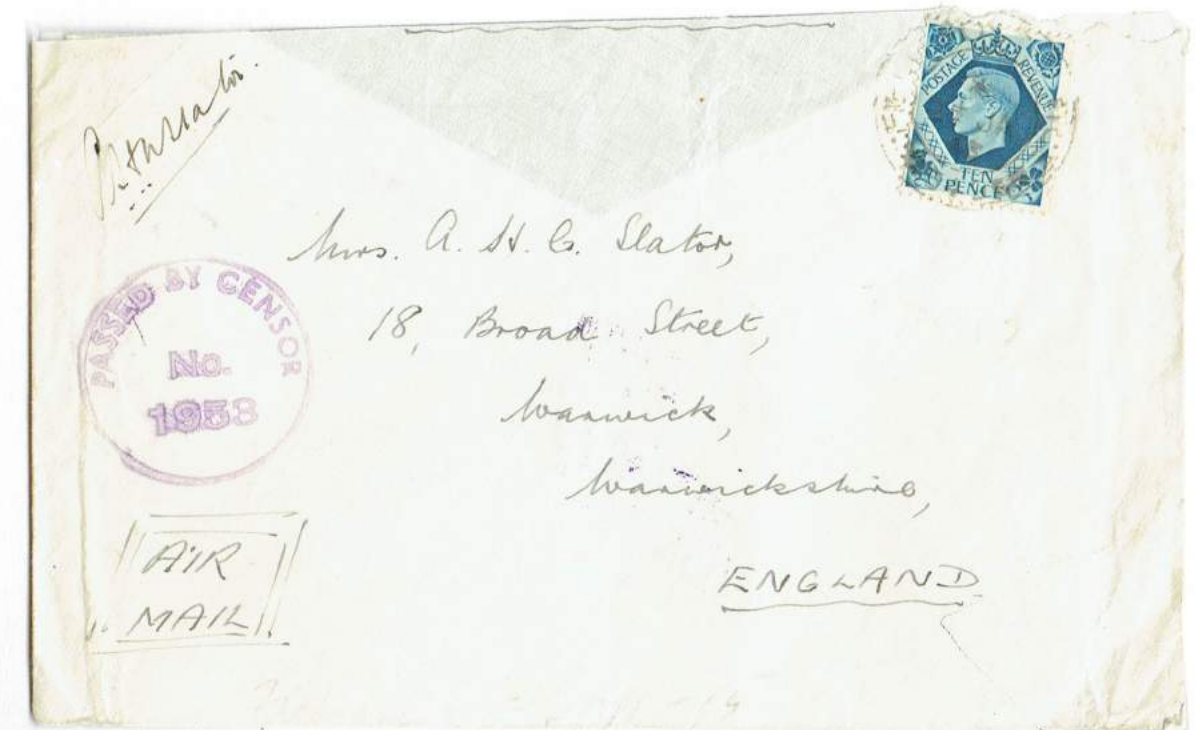 POSTAGE REVENUE
TEN
PENCE
Mrs. A. H. C. Slator,
18, Broad Street,
Warwick,
Warwickshire,
ENGLAND
PASSED BY CENSOR
No.
1953
AIR
MAIL